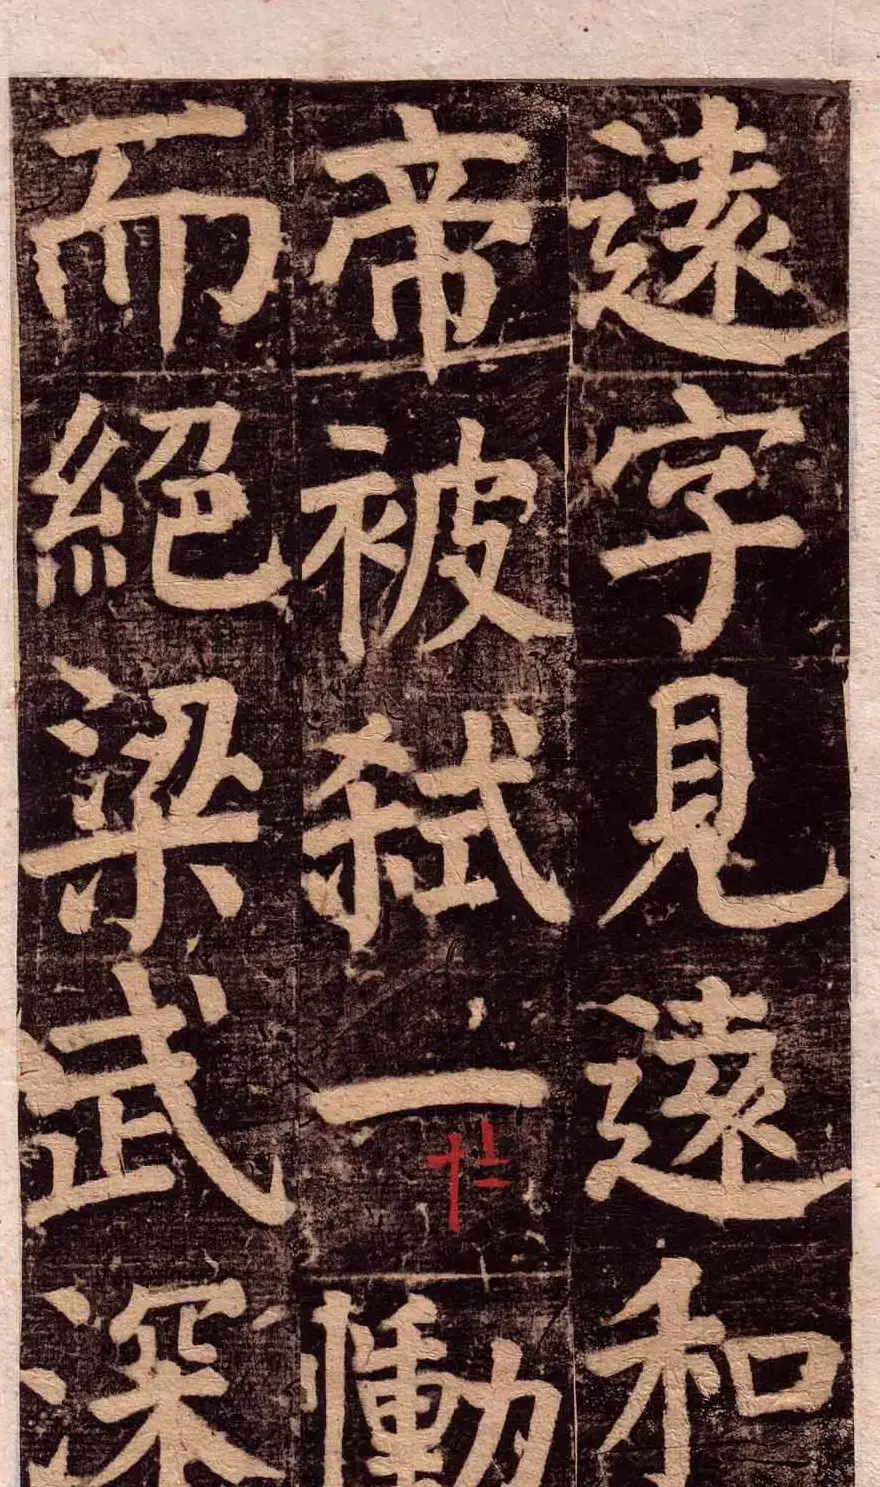 遠字見遠和
帝被弑一慟
而絕梁武深